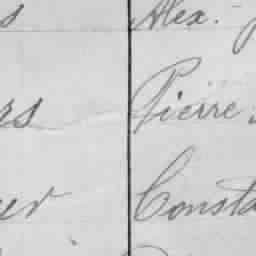 s Alex.
rs Pierre
er Consta